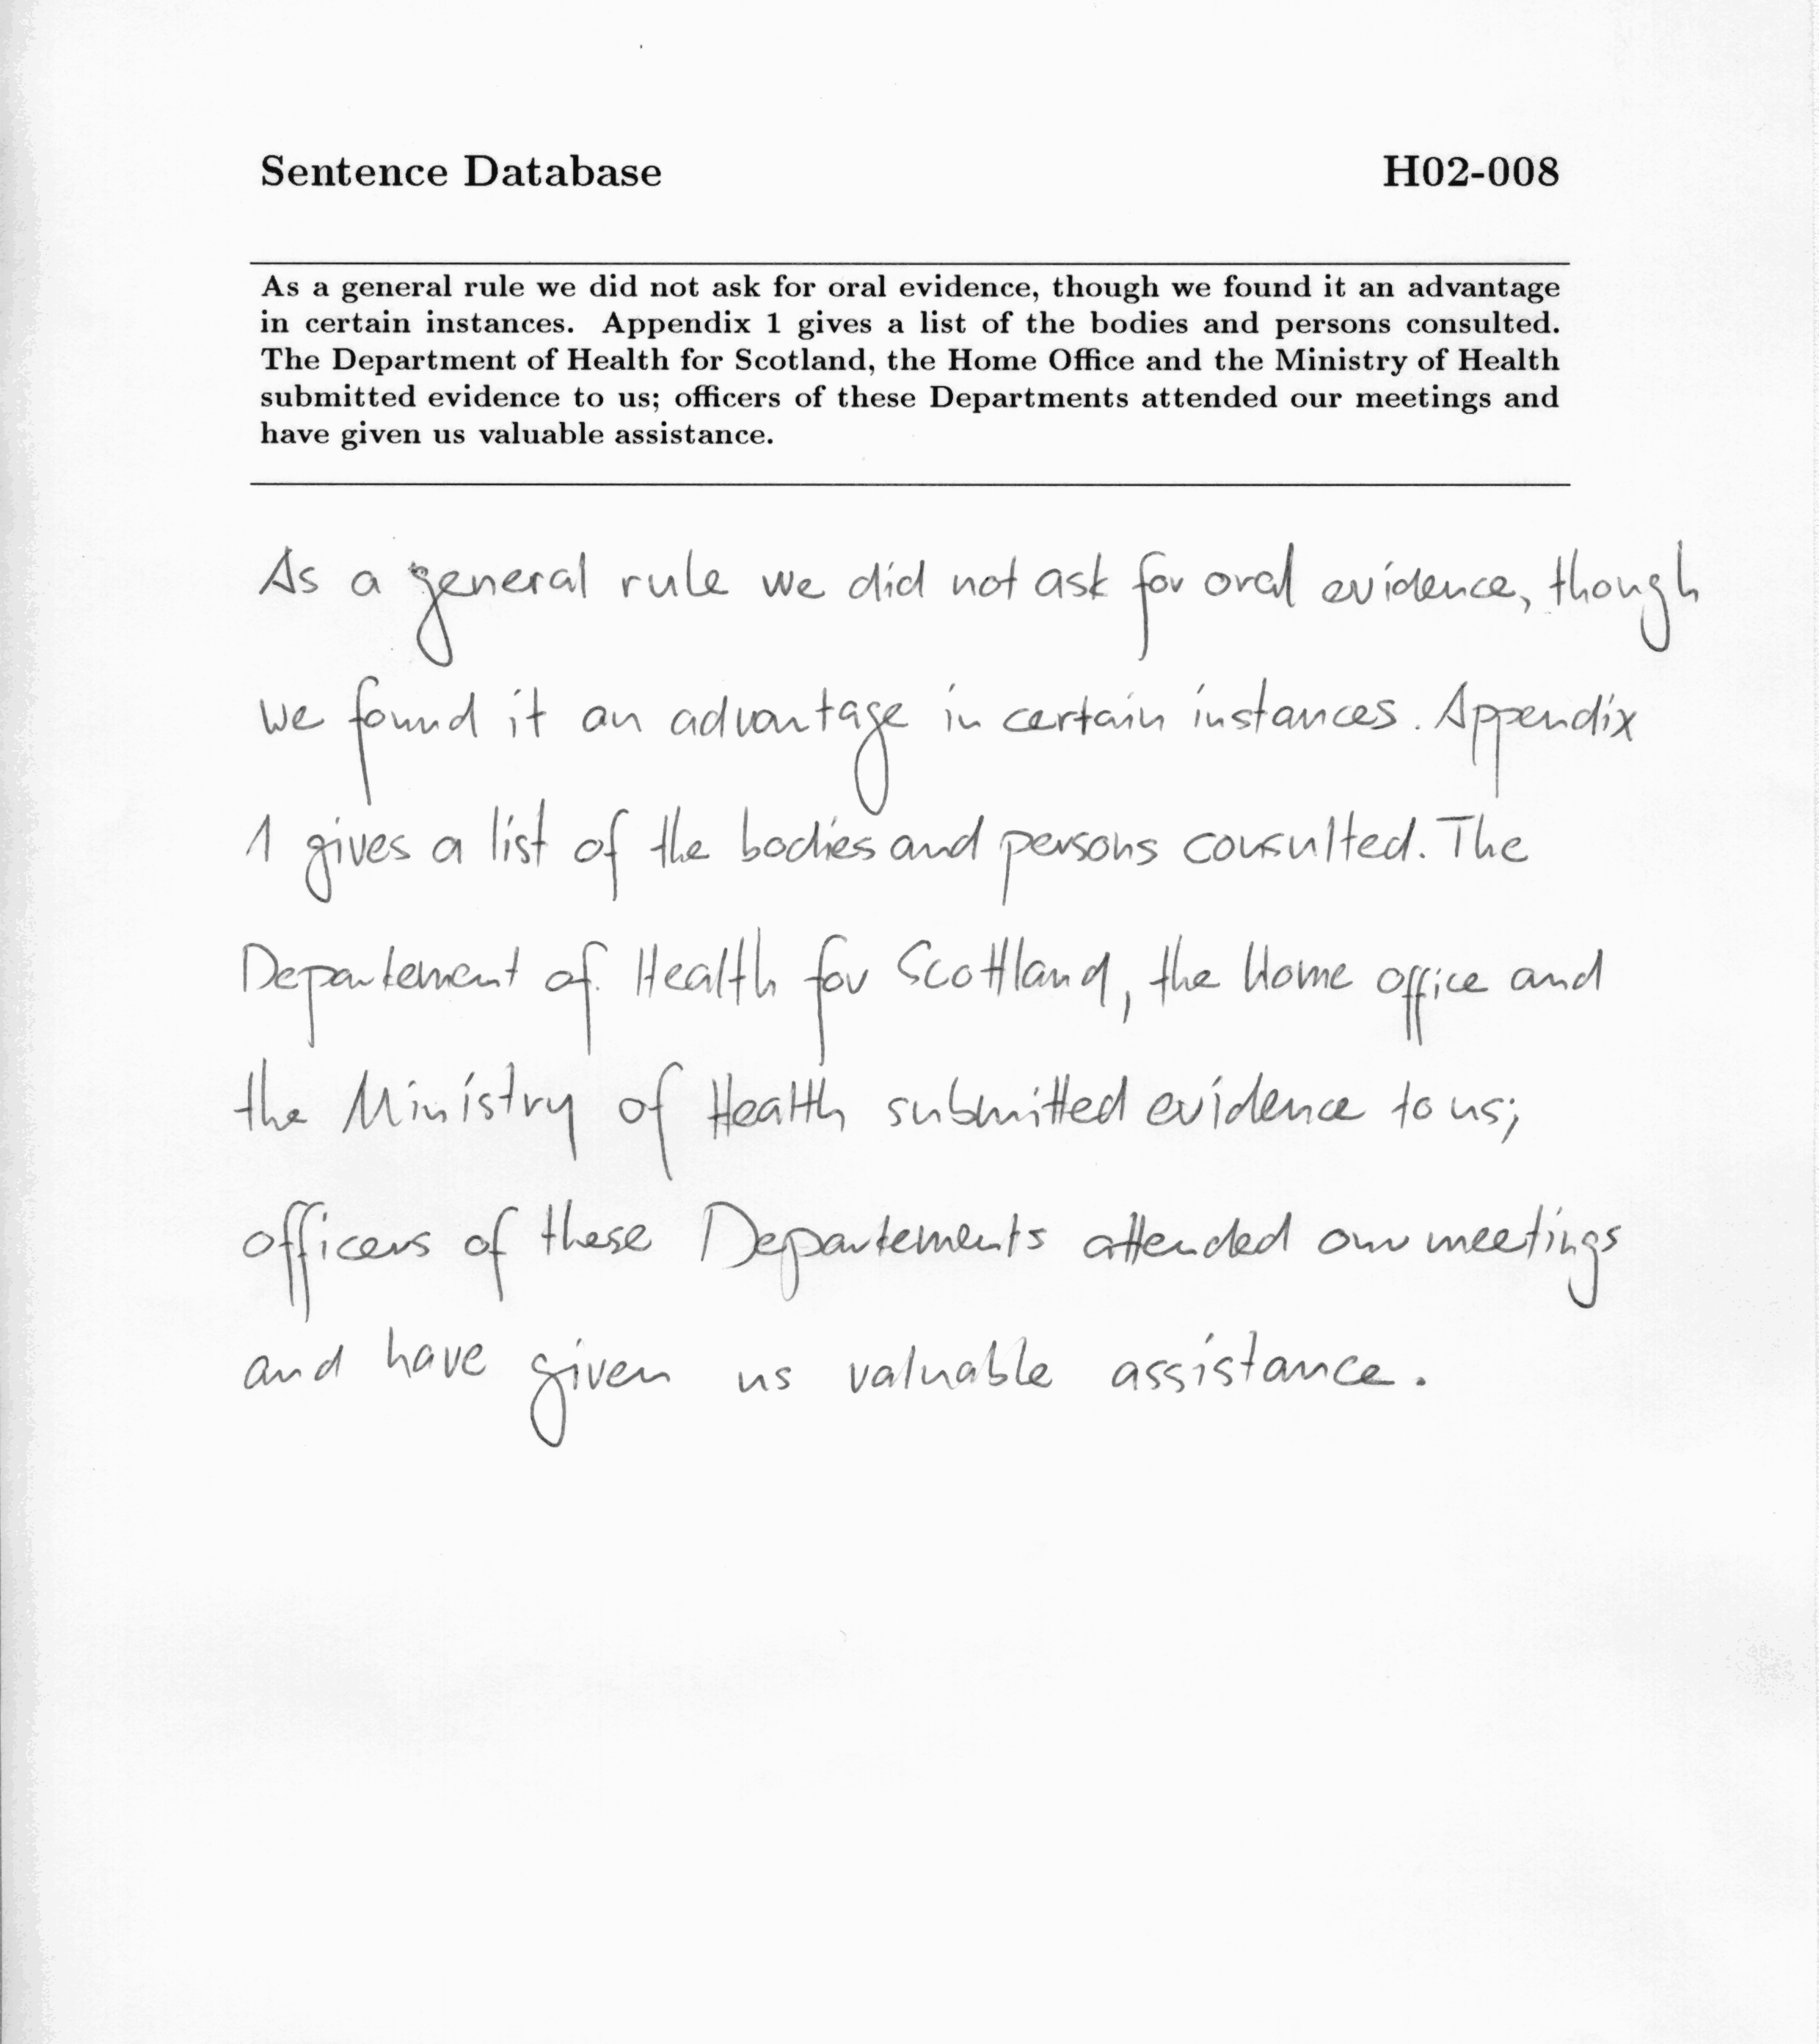 Sentence Database H02-008
As a general rule we did not ask for oral evidence, though we found it an advantage
in certain instances. Appendix 1 gives a list of the bodies and persons consulted.
The Department of Health for Scotland, the Home Office and the Ministry of Health
submitted evidence to us; officers of these Departments attended our meetings and
have given us valuable assistance.
As a general rule we did not ask for oral evidence, though
we found it an advantage in certain instances. Appendix
1 gives a list of the bodies and persons consulted. The
Departement of Health for Scottland, the Home office and
the Ministry of Health submitted evidence to us;
officers of these Departements attended our meetings
and have given us valuable assistance.